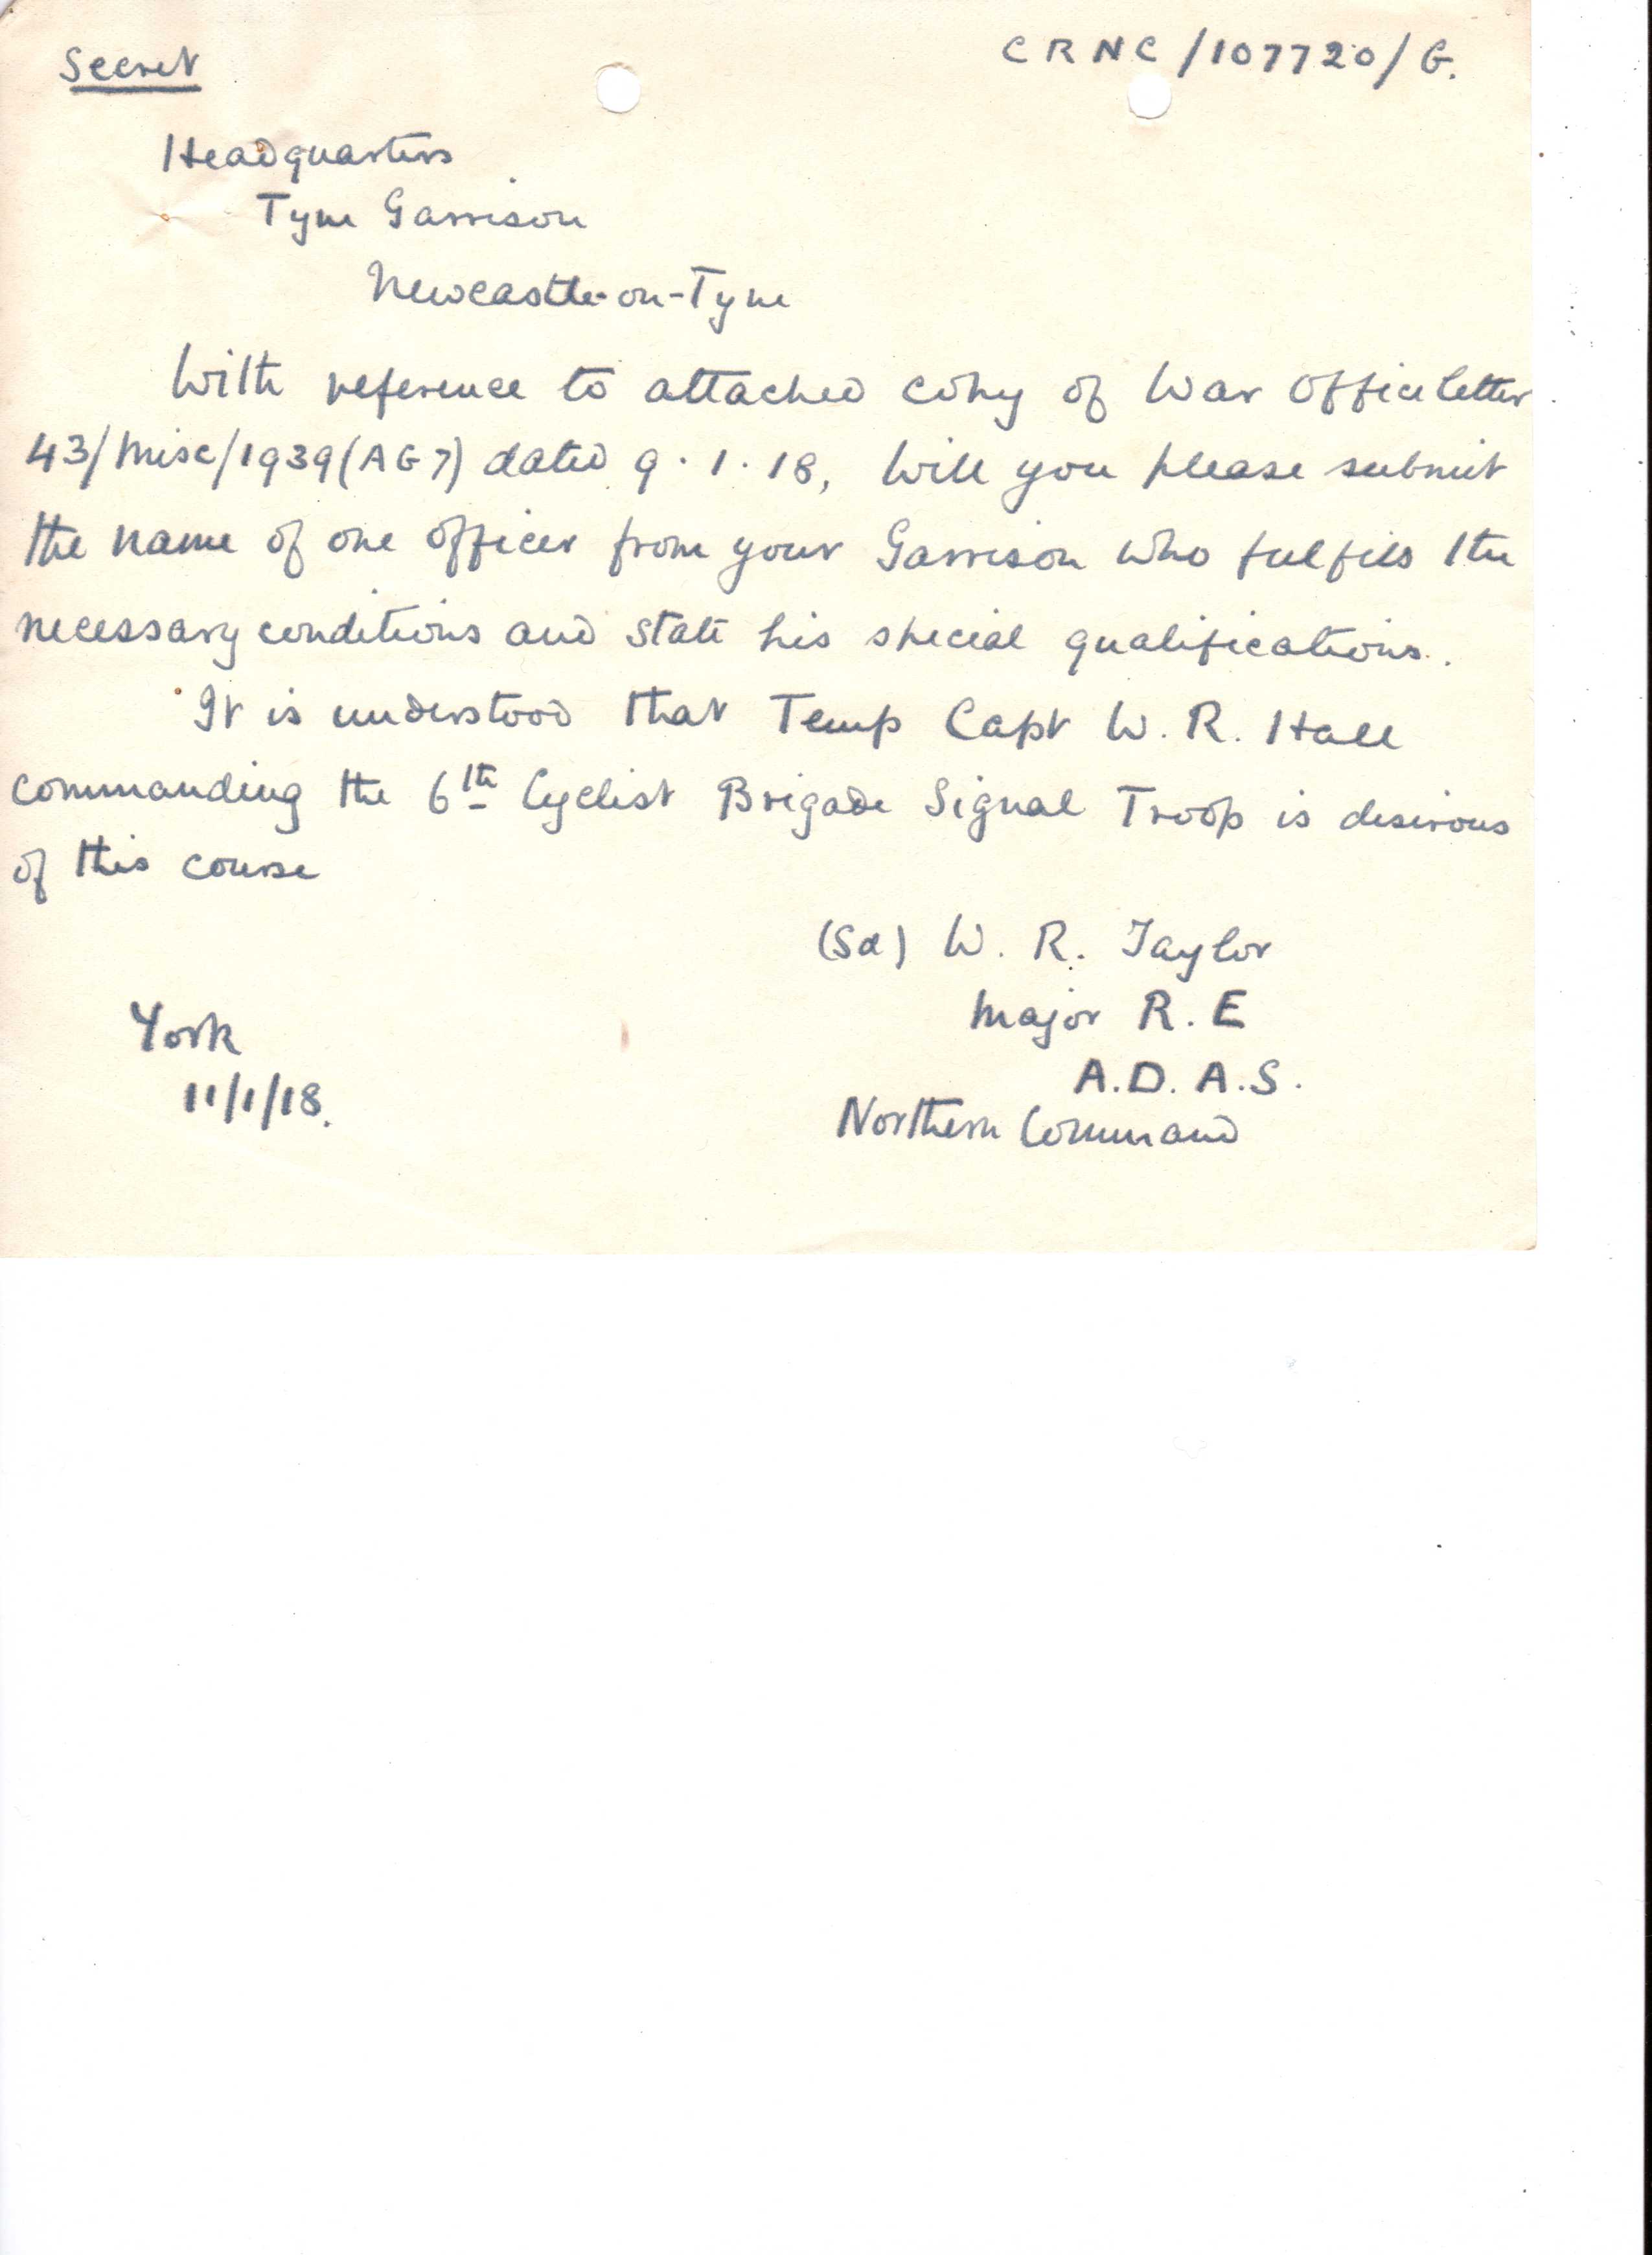 Secret
CRNC/107720/G.
Headquarters
Tyne Garrison
Newcastle-on-Tyne
With reference to attached copy of War Office letter
43/Misc/1939(AG7) dated 9.1.18, Will you please submit
the name of one officer from your Garrison who fulfils the
necessary conditions and state his special qualifications.
It is understood that Temp Capt W. R. Hall
commanding the 6th Cyclist Brigade Signal Troop is desirous
of this course
(Sd) W. R. Taylor
Major R.E
A.D.A.S.
Northern Command
York
11/1/18.